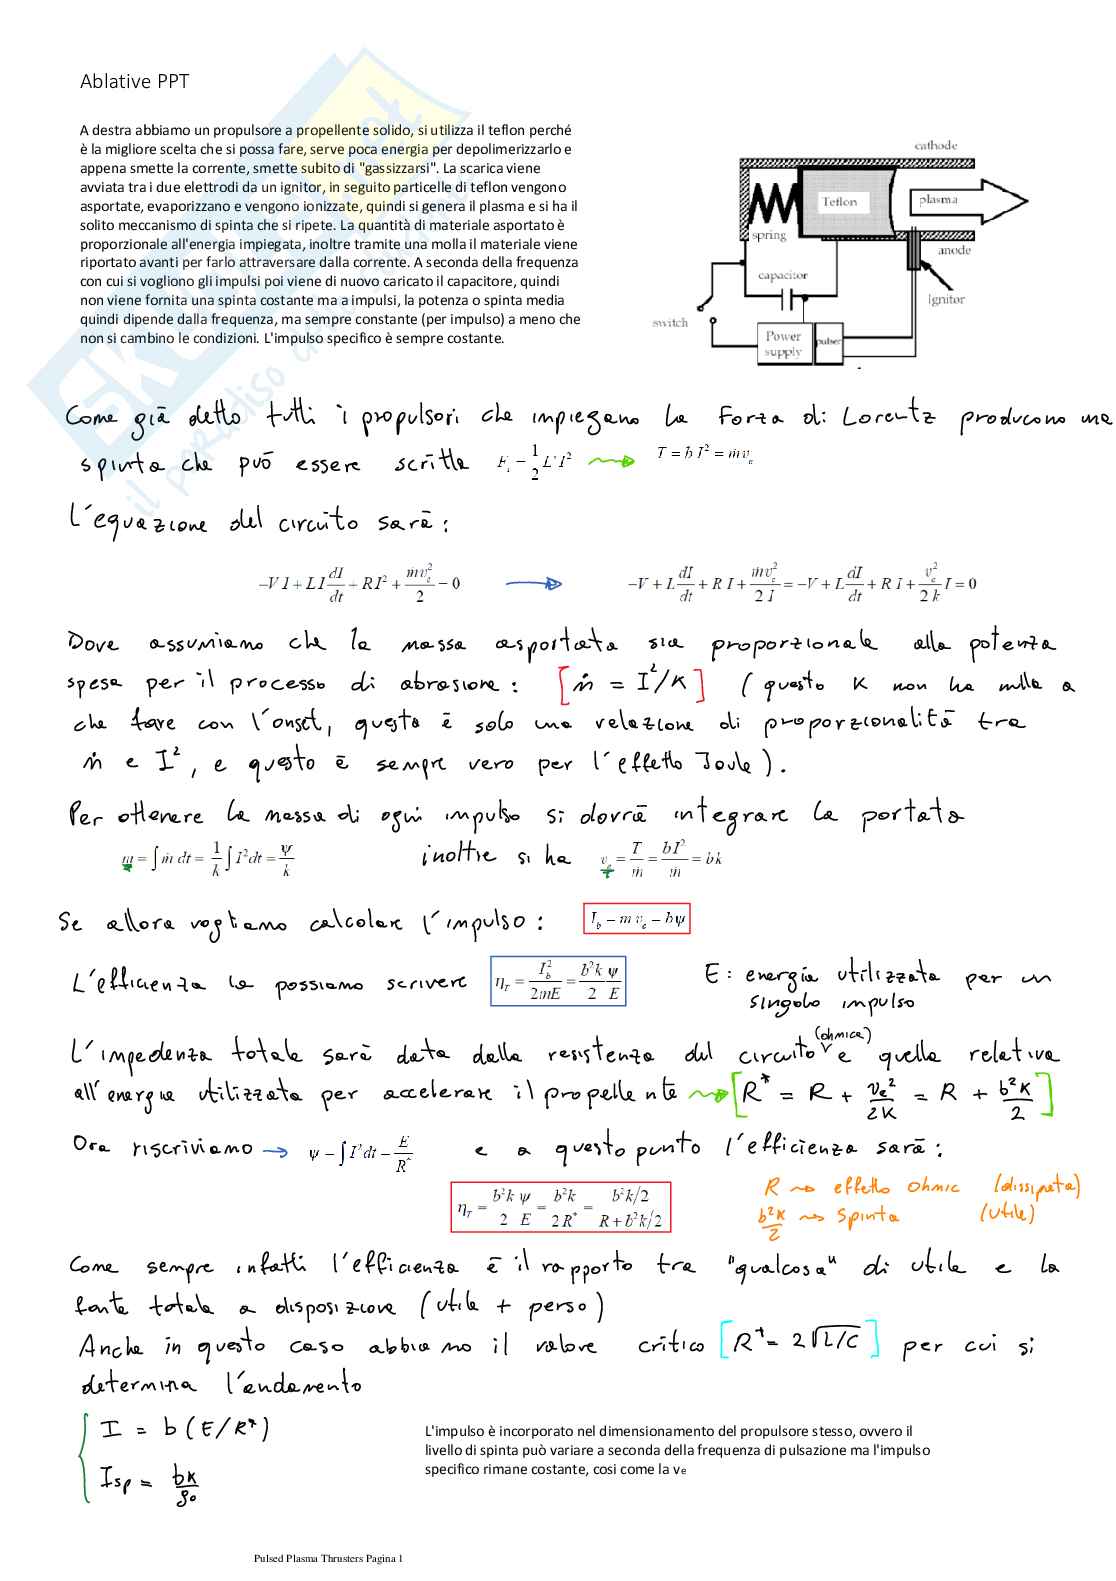 Ablative PPT
A destra abbiamo un propulsore a propellente solido, si utilizza il teflon perché
è la migliore scelta che si possa fare, serve poca energia per depolimerizzarlo e
appena smette la corrente, smette subito di "gassizzarsi". La scarica viene
avviata tra i due elettrodi da un ignitor, in seguito particelle di teflon vengono
asportate, evaporizzano e vengono ionizzate, quindi si genera il plasma e si ha il
solito meccanismo di spinta che si ripete. La quantità di materiale asportato è
proporzionale all'energia impiegata, inoltre tramite una molla il materiale viene
riportato avanti per farlo attraversare dalla corrente. A seconda della frequenza
con cui si vogliono gli impulsi poi viene di nuovo caricato il capacitore, quindi
non viene fornita una spinta costante ma a impulsi, la potenza o spinta media
quindi dipende dalla frequenza, ma sempre constante (per impulso) a meno che
non si cambino le condizioni. L'impulso specifico è sempre costante.
cathode
Teflon
plasma
spring
anode
capacitor
Ignitor
switch
Power supply
pulser
Come già detto tutti i propulsori che impiegano la Forza di Lorentz producono una
spinta che può essere scritta F_t = 1/2 L' I² → T = b I² = ṁ v_e
L'equazione del circuito sarà:
-V I + L I dI/dt + R I² + ṁ v_e²/2 = 0 → -V + L dI/dt + R I + ṁ v_e²/(2 I) = -V + L dI/dt + R I + v_e²/(2 k) I = 0
Dove assumiamo che la massa asportata sia proporzionale alla potenza
spesa per il processo di abrasione: [ṁ = I²/K] (questo K non ha nulla a
che fare con l'onset, questo è solo una relazione di proporzionalità tra
ṁ e I², e questo è sempre vero per l'effetto Joule).
Per ottenere la massa di ogni impulso si dovrà integrare la portata
m = ∫ ṁ dt = 1/k ∫ I² dt = ψ/k inoltre si ha v_e = T/ṁ = b I²/ṁ = b k
Se allora vogliamo calcolare l'impulso: I_b = m v_e = b ψ
L'efficienza la possiamo scrivere η_T = I_b²/(2mE) = b²k/2 ψ/E E: energia utilizzata per un
singolo impulso
L'impedenza totale sarà data dalla resistenza del circuito (ohmica) e quella relativa
all'energia utilizzata per accelerare il propellente → [R* = R + v_e²/2K = R + b²K/2]
Ora riscriviamo → ψ = ∫ I² dt = E/R* e a questo punto l'efficienza sarà:
η_T = b²k/2 ψ/E = b²k/(2R*) = (b²k/2)/(R + b²k/2)
R → effetto ohmic (dissipata)
b²K/2 → Spinta (utile)
Come sempre infatti l'efficienza è il rapporto tra "qualcosa" di utile e la
fonte totale a disposizione (utile + perso)
Anche in questo caso abbiamo il valore critico [R* = 2√L/C] per cui si
determina l'andamento
I = b (E/R*)
Isp = bk/g₀
L'impulso è incorporato nel dimensionamento del propulsore stesso, ovvero il
livello di spinta può variare a seconda della frequenza di pulsazione ma l'impulso
specifico rimane costante, cosi come la ve
Pulsed Plasma Thrusters Pagina 1